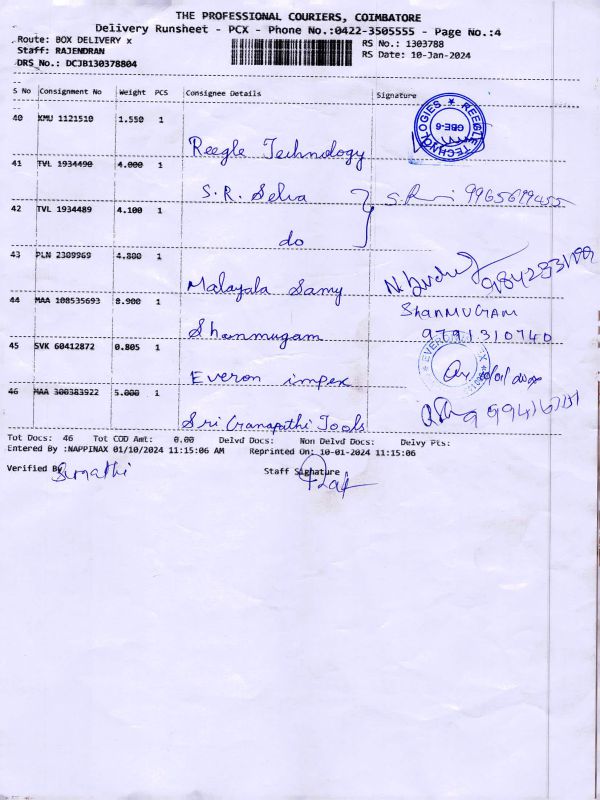 THE PROFESSIONAL COURIERS, COIMBATORE
Delivery Runsheet - PCX - Phone No.:0422-3505555 - Page No.:4
Route: BOX DELIVERY x
RS No.: 1303788
Staff: RAJENDRAN
RS Date: 10-Jan-2024
DRS No.: DCJB130378804
S No Consignment No Weight PCS Consignee Details Signature
40 KMU 1121510 1.550 1
REEGLE TECHNOLOGIES
CBE-6
Reegle Technology
41 TVL 1934490 4.000 1
S.R. Selva
42 TVL 1934489 4.100 1
do
43 PLN 2309969 4.800 1
Malayala Samy
44 MAA 108535693 8.900 1
SHANMUGAM
Shanmugam 9791310740
45 SVK 60412872 0.805 1
Everon impex
46 MAA 300383922 5.000 1
Sri Ganapathi Tools
Tot Docs: 46 Tot COD Amt: 0.00 Delvd Docs: Non Delvd Docs: Delvy Pts:
Entered By :NAPPINAX 01/10/2024 11:15:06 AM Reprinted On: 10-01-2024 11:15:06
Verified By Staff Signature